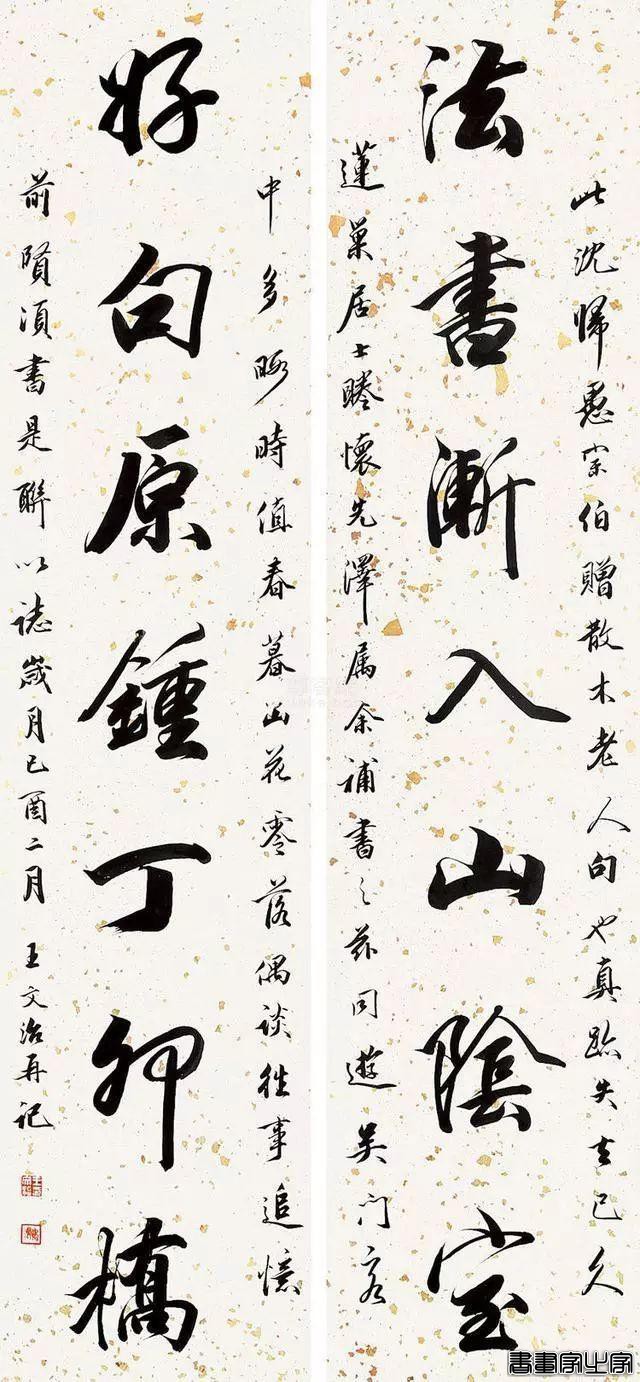 此沈歸愚宗伯贈散木老人句也真跡失去已久
法書漸入山陰室
蓮巢居士睠懷先澤属余補書之茲同遊吴门客
中多暇時值春暮山花零落偶談往事追憶
好句原鍾丁卯橋
前賢湏書是聯以誌歲月己酉二月 王文治再记
書畫家出家